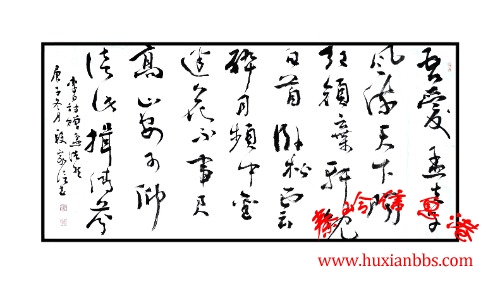 吾愛孟夫子
风流天下聞
红颜棄軒冕
白首卧松云
醉月頻中聖
迷花不事君
高山安可仰
徒此揖清芬
李白詩贈孟浩然
庚子冬月
www.huxianbbs.com